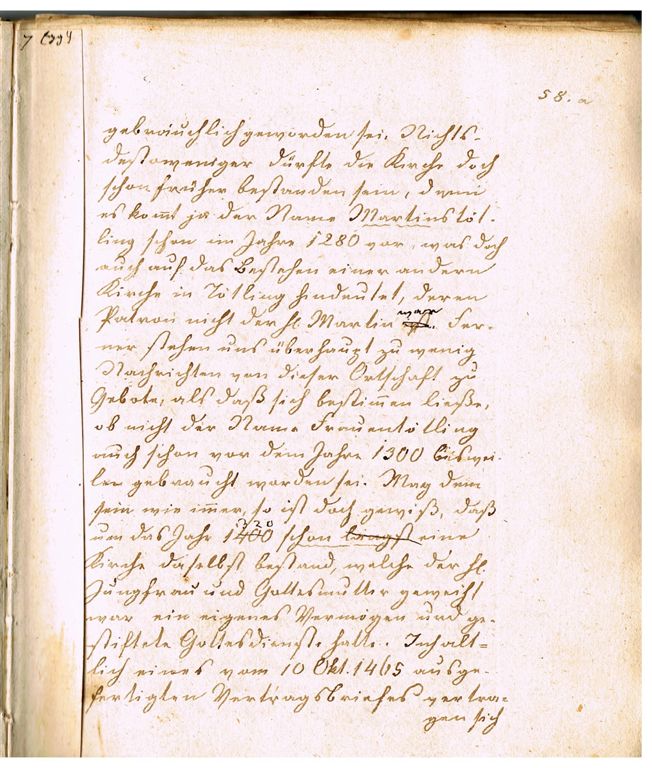 58. a
gebräuchlich geworden sei. Nichts-
destoweniger dürfte die Kirche doch
schon früher bestanden sein, denn
es kommt ja der Name Martinstöt-
ling schon im Jahre 1280 vor, was doch
auch auf das Bestehen einer andern
Kirche in Tötling hindeutet, deren
Patron nicht der hl. Martin war. Fer-
ner stehen uns überhaupt zu wenig
Nachrichten von dieser Ortschaft zu
Gebote, als daß sich bestimmen ließe,
ob nicht der Name Frauentötling
auch schon vor dem Jahre 1300 biswei-
len gebraucht worden sei. Mag dem
sein wie immer, so ist doch gewiß, daß
320
um das Jahr 1400 schon längst eine
Kirche daselbst bestand, welche der hl.
Jungfrau und Gottesmutter geweiht
war ein eigenes Vermögen und ge-
stiftete Gottesdienste hatte. Inhalt-
lich eines vom 10 Okt. 1465 ausge-
fertigten Vertragsbriefes vertra-
gen sich